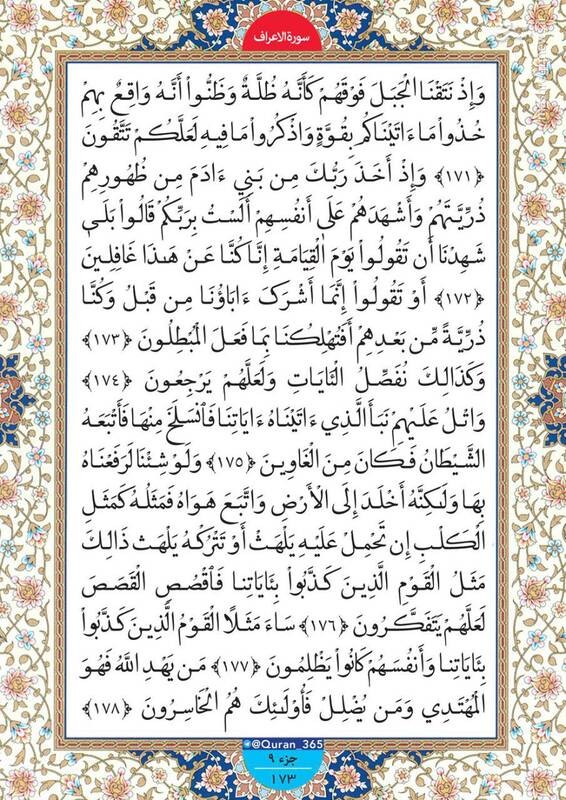 سورة الاعراف
وَإِذْ نَتَقْنَا الْجَبَلَ فَوْقَهُمْ كَأَنَّهُ ظُلَّةٌ وَظَنُّواْ أَنَّهُ وَاقِعٌ بِهِمْ
خُذُواْ مَا ءَاتَيْنَاكُم بِقُوَّةٍ وَاذْكُرُواْ مَا فِيهِ لَعَلَّكُمْ تَتَّقُونَ
﴿١٧١﴾ وَإِذْ أَخَذَ رَبُّكَ مِن بَنِي ءَادَمَ مِن ظُهُورِهِمْ
ذُرِّيَّتَهُمْ وَأَشْهَدَهُمْ عَلَى أَنفُسِهِمْ أَلَسْتُ بِرَبِّكُمْ قَالُواْ بَلَى
شَهِدْنَا أَن تَقُولُواْ يَوْمَ الْقِيَامَةِ إِنَّا كُنَّا عَنْ هَـٰذَا غَافِلِينَ
﴿١٧٢﴾ أَوْ تَقُولُواْ إِنَّمَا أَشْرَكَ ءَابَاؤُنَا مِن قَبْلُ وَكُنَّا
ذُرِّيَّةً مِّن بَعْدِهِمْ أَفَتُهْلِكُنَا بِمَا فَعَلَ الْمُبْطِلُونَ ﴿١٧٣﴾
وَكَذَالِكَ نُفَصِّلُ الْئَايَاتِ وَلَعَلَّهُمْ يَرْجِعُونَ ﴿١٧٤﴾
وَاتْلُ عَلَيْهِمْ نَبَأَ الَّذِي ءَاتَيْنَاهُ ءَايَاتِنَا فَانْسَلَخَ مِنْهَا فَأَتْبَعَهُ
الشَّيْطَانُ فَكَانَ مِنَ الْغَاوِينَ ﴿١٧٥﴾ وَلَوْ شِئْنَا لَرَفَعْنَاهُ
بِهَا وَلَـٰكِنَّهُ أَخْلَدَ إِلَى الْأَرْضِ وَاتَّبَعَ هَوَاهُ فَمَثَلُهُ كَمَثَلِ
الْكَلْبِ إِن تَحْمِلْ عَلَيْهِ يَلْهَثْ أَوْ تَتْرُكْهُ يَلْهَث ذَالِكَ
مَثَلُ الْقَوْمِ الَّذِينَ كَذَّبُواْ بِئَايَاتِنَا فَاقْصُصِ الْقَصَصَ
لَعَلَّهُمْ يَتَفَكَّرُونَ ﴿١٧٦﴾ سَاءَ مَثَلًا الْقَوْمُ الَّذِينَ كَذَّبُواْ
بِئَايَاتِنَا وَأَنفُسَهُمْ كَانُواْ يَظْلِمُونَ ﴿١٧٧﴾ مَن يَهْدِ اللَّهُ فَهُوَ
الْمُهْتَدِي وَمَن يُضْلِلْ فَأُوْلَـٰئِكَ هُمُ الْخَاسِرُونَ ﴿١٧٨﴾
@Quran_365
جزء ٩
١٧٣